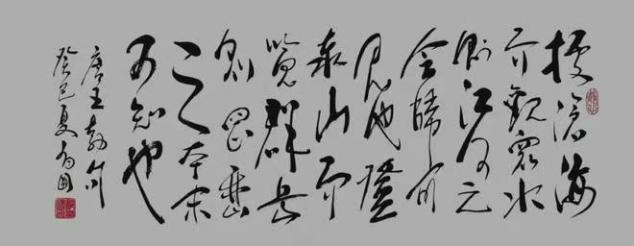 據滄海
而觀眾水
則江河之
會歸可
見也登
泰山而
覽群岳
則岡巒
之本末
可知也
唐王勃句
癸巳夏